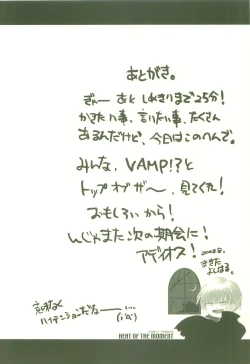 あとがき。
ぎゃー あと しめきりまで25分!
かきたい事、言いたい事、たくさん
あるんだけど、今日はこのへんで。
みんな、VAMP!?と
トップオブザ〜、見てくれ!
おもしろいから!
んじゃまた次の機会に!
アデイオス!
まきた
よしはる。
ハイテンションだなー……
HEAT OF THE MOMENT